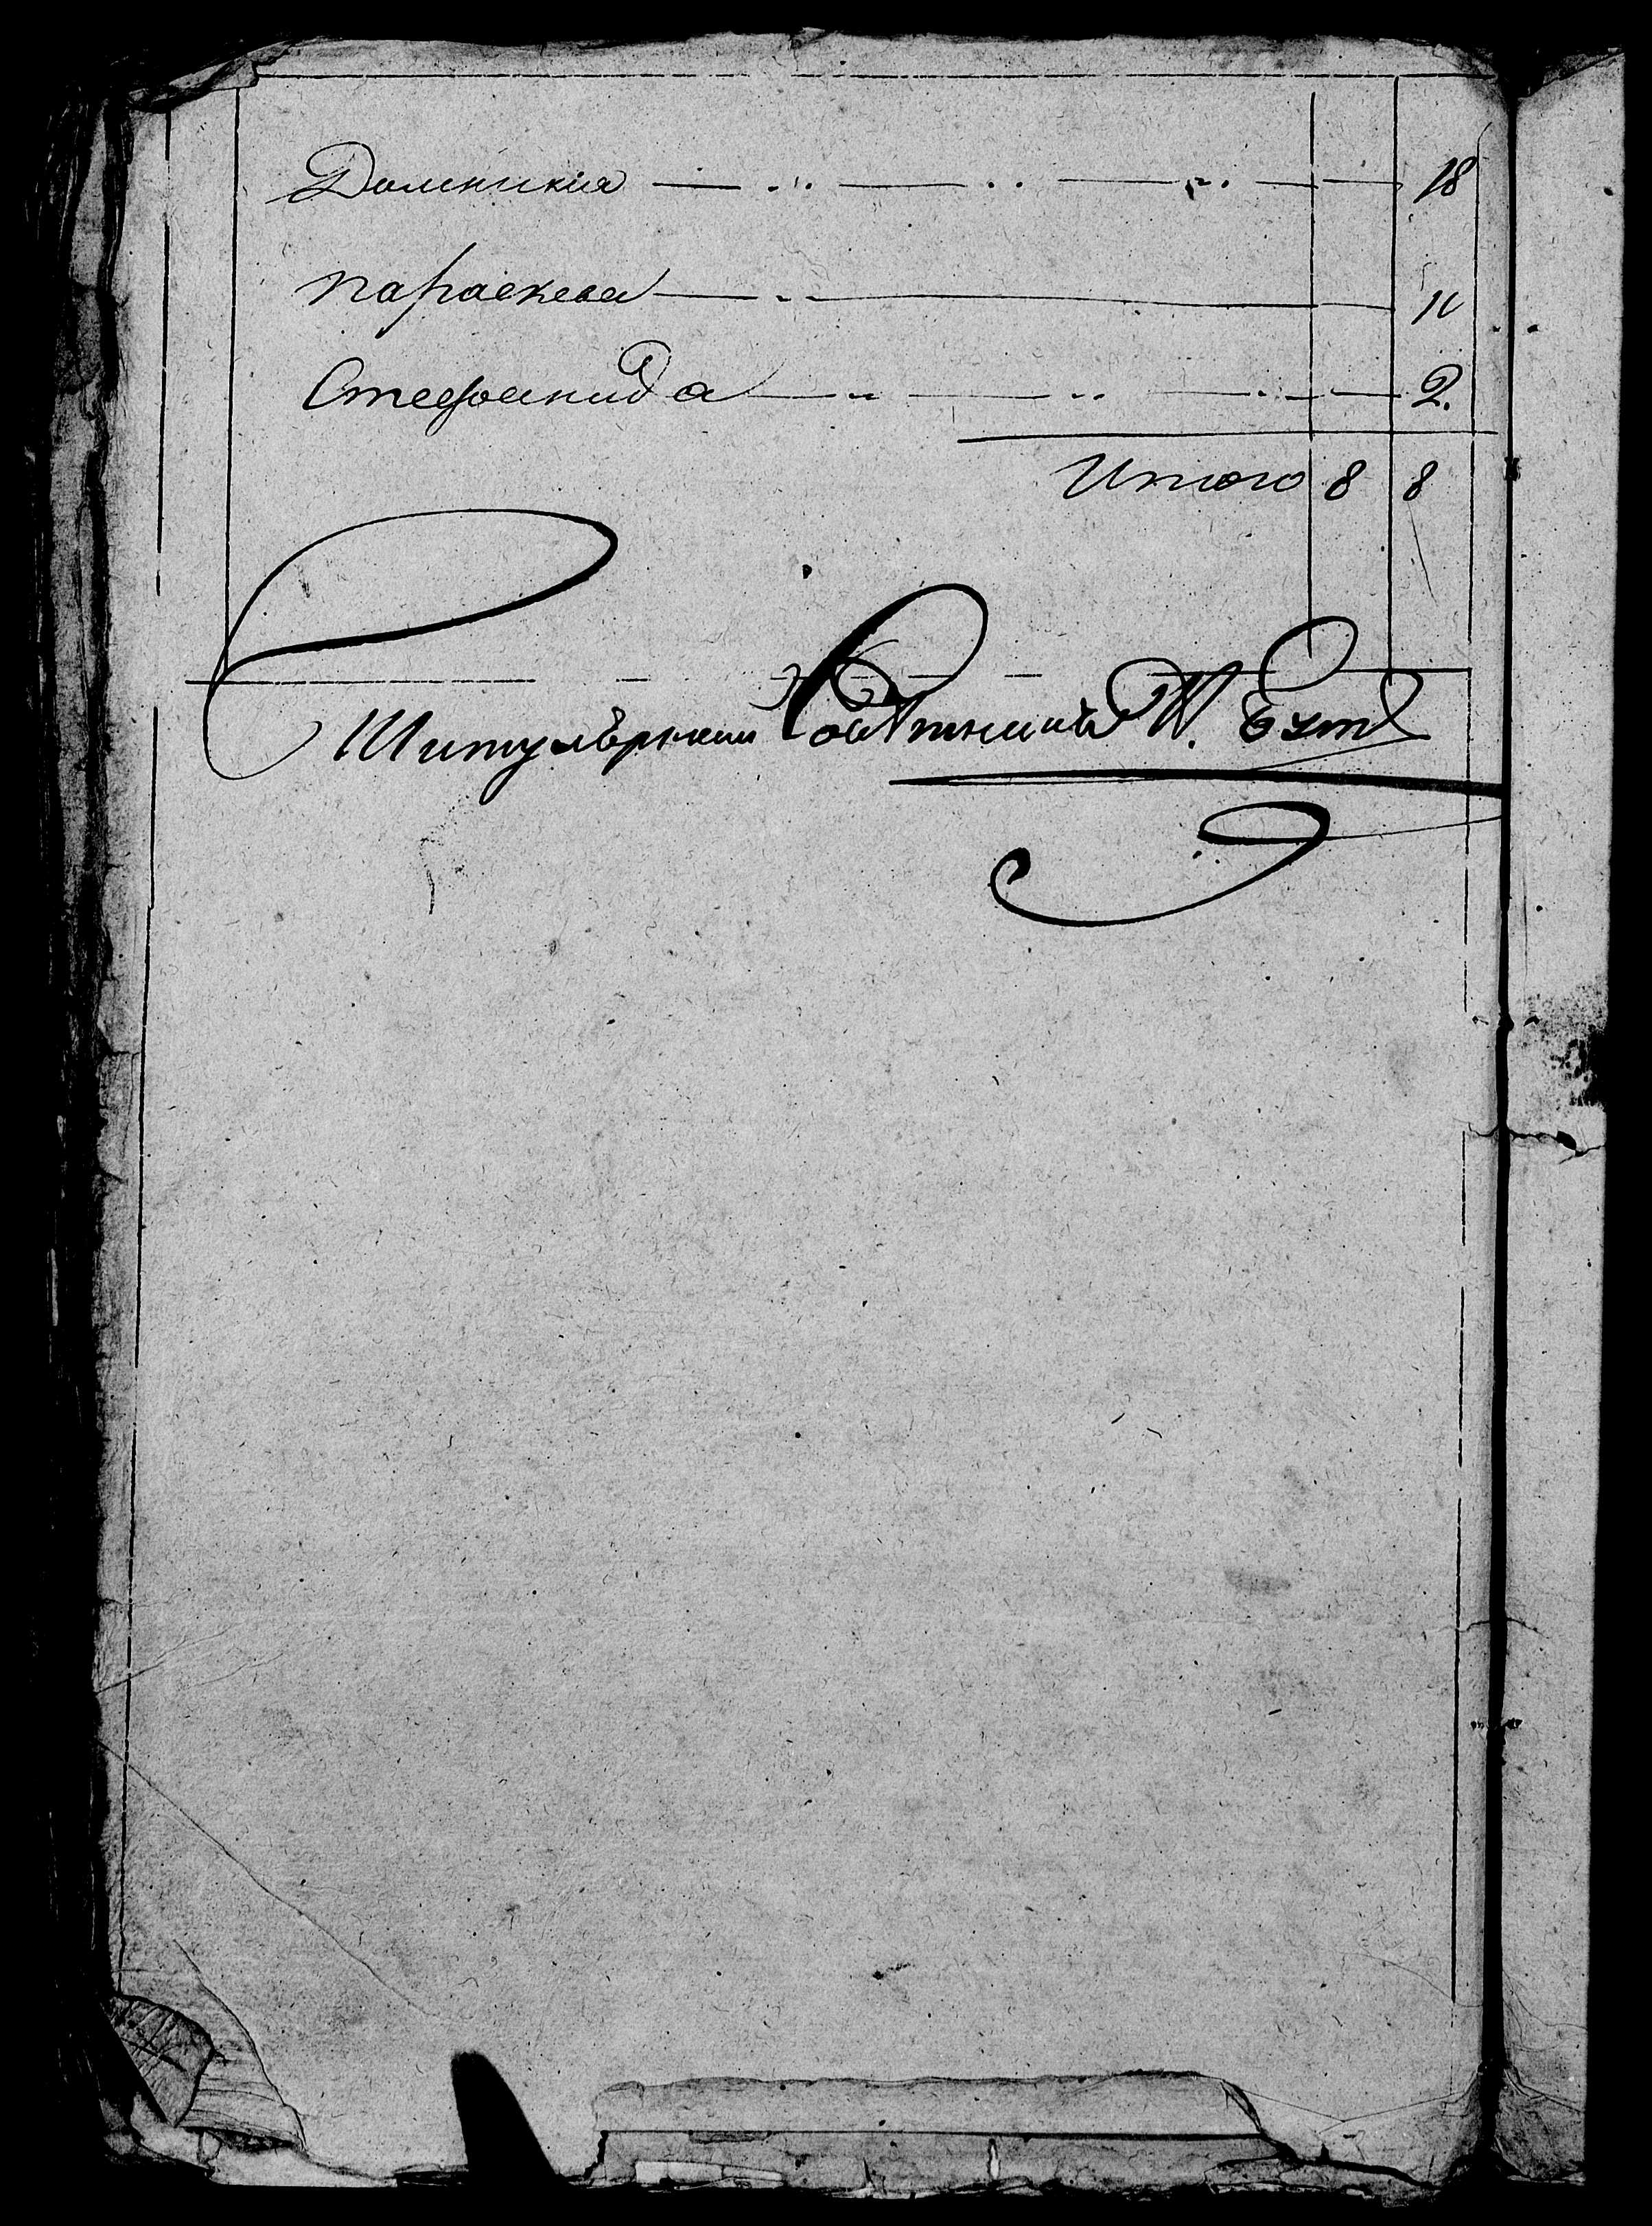 Домникия 18
параскева 11
Стефанида 2.
Итого 8 8
Титулярный Советникъ